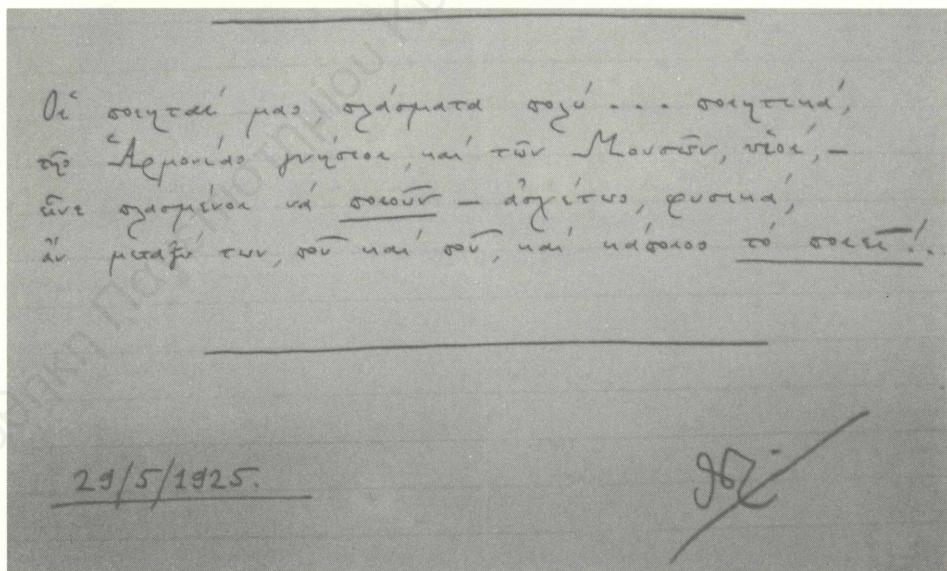 Οἱ ποιηταί μας πλάσματα πολύ... ποιητικά,
τῆς Ἁρμονίας γνήσιοι, καί τῶν Μουσῶν, υἱοί, –
εἶνε πλασμένοι νά ποιοῦν – ἀσχέτως, φυσικά,
ἄν μεταξύ των, ποῦ καί ποῦ, καί κάποιος τό ποιεῖ!.
29/5/1925.